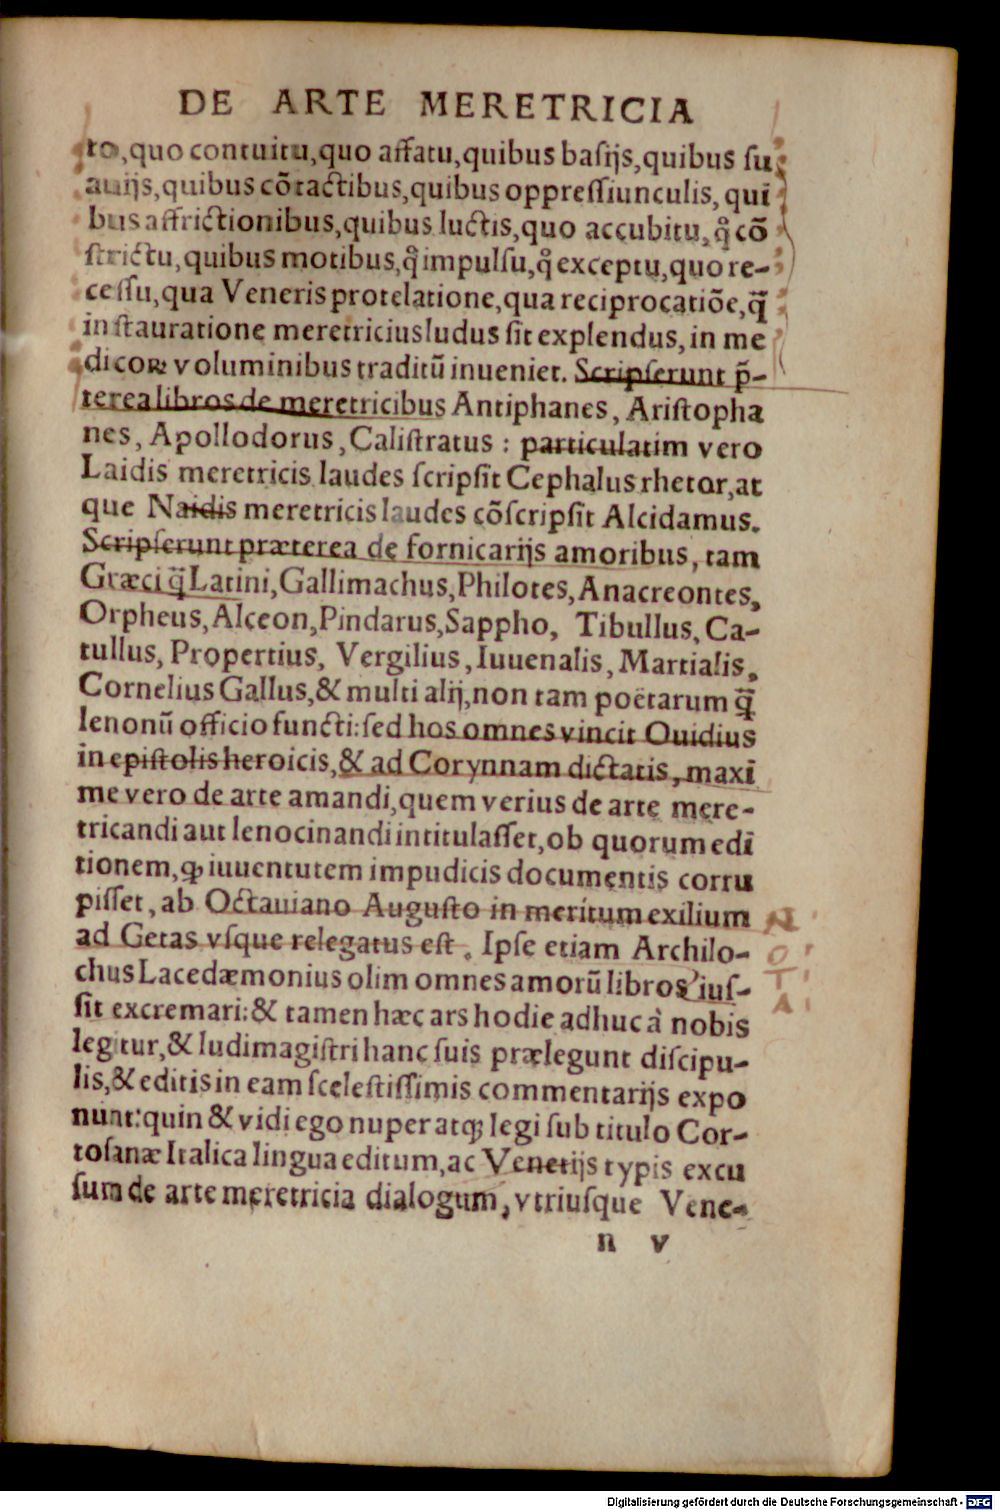 DE ARTE MERETRICIA
to, quo contuitu, quo affatu, quibus basijs, quibus su
auijs, quibus cõtactibus, quibus oppressiunculis, quĩ
bus affrictionibus, quibus luctis, quo accubitu, q̊ cõ
strictu, quibus motibus, q̊ impulsu, q̊ exceptu, quo re-
cessu, qua Veneris protelatione, qua reciprocatiõe, q̃
instauratione meretricius ludus sit explendus, in me
dicoꝝ voluminibus traditũ inueniet. Scripserunt p̃-
terea libros de meretricibus Antiphanes, Aristopha
nes, Apollodorus, Calistratus : particulatim vero
Laidis meretricis laudes scripsit Cephalus rhetor, at
que Naidis meretricis laudes cõscripsit Alcidamus.
Scripserunt præterea de fornicarijs amoribus, tam
Græci q̃ Latini, Gallimachus, Philotes, Anacreontes,
Orpheus, Alceon, Pindarus, Sappho, Tibullus, Ca-
tullus, Propertius, Vergilius, Iuuenalis, Martialis,
Cornelius Gallus, & multi alij, non tam poëtarum q̃
lenonũ officio functi: sed hos omnes vincit Ouidius
in epistolis heroicis, & ad Corynnam dictatis, maxĩ
me vero de arte amandi, quem verius de arte mere-
tricandi aut lenocinandi intitulasset, ob quorum edĩ
tionem, ꝙ iuuentutem impudicis documentis corru
pisset, ab Octauiano Augusto in meritum exilium
ad Getas vsque relegatus est. Ipse etiam Archilo-
chus Lacedæmonius olim omnes amorũ libros ius-
sit excremari: & tamen hæc ars hodie adhuc à nobis
legitur, & ludimagistri hanc suis prælegunt discipu-
lis, & editis in eam scelestissimis commentarijs expo
nunt: quin & vidi ego nuper atq; legi sub titulo Cor-
tosanæ Italica lingua editum, ac Venetijs typis excu
sum de arte meretricia dialogum, vtriusque Vene-
n v
N
O
T
A
Digitalisierung gefördert durch die Deutsche Forschungsgemeinschaft - DFG